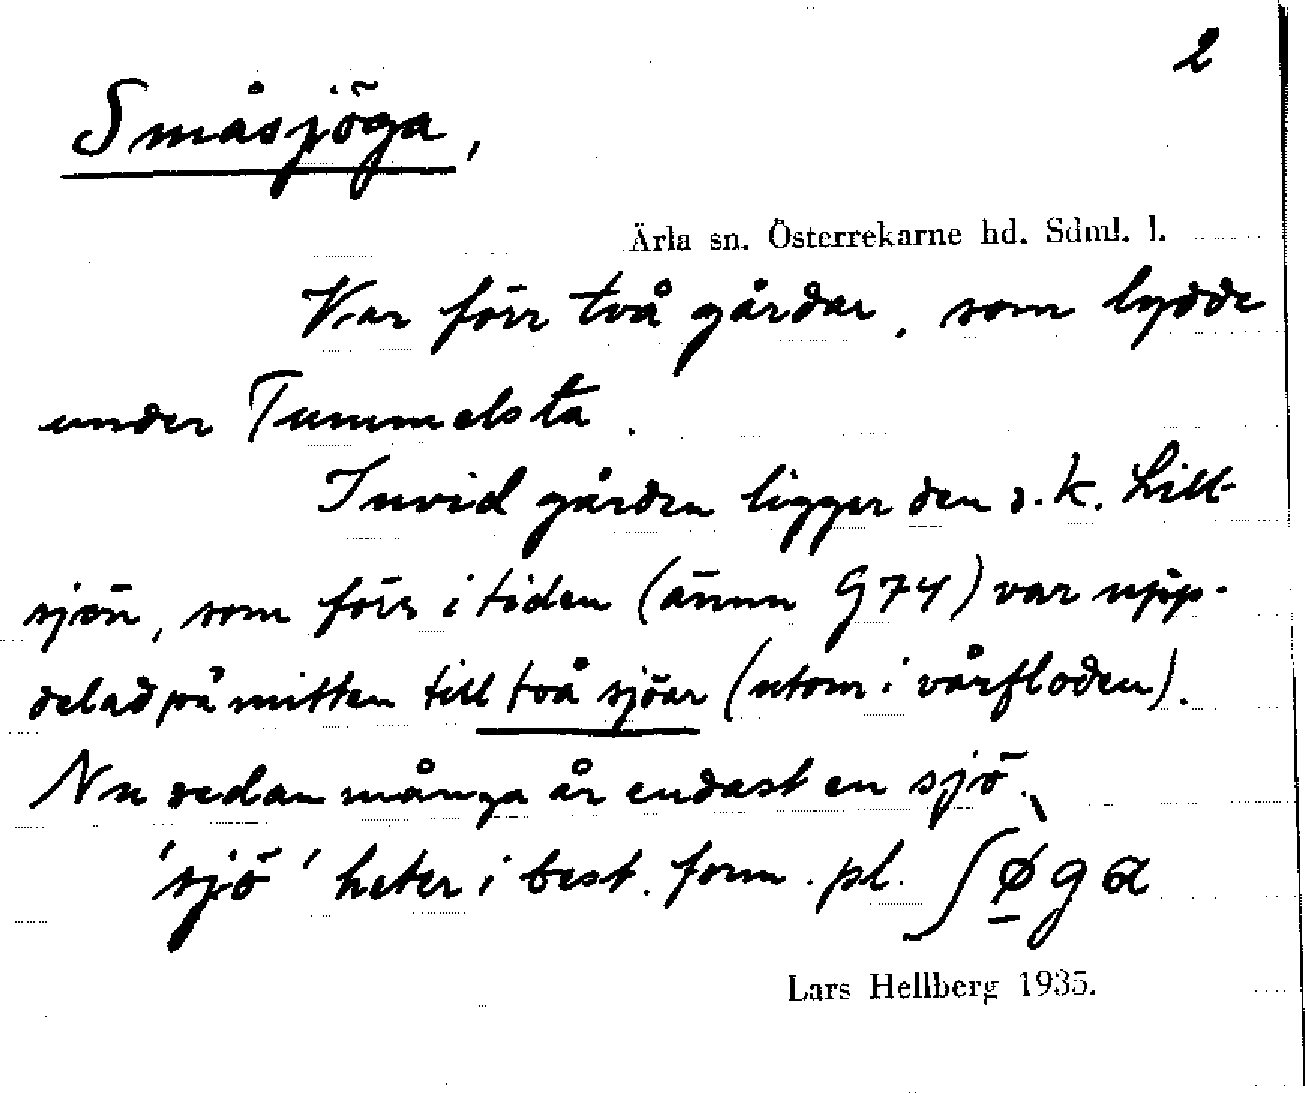 2
Småsjöga,
Ärla sn. Österrekarne hd. Sdml. l.
Var förr två gårdar, som lydde
under Tummelsta.
Invid gården ligger den s.k. Lill-
sjön, som förr i tiden (ännu G 74) var upp-
delad på mitten till två sjöar (utom i vårfloden).
Nu sedan många år endast en sjö.
'sjö' heter i best. form. pl. ʃøgɑ
Lars Hellberg 1935.